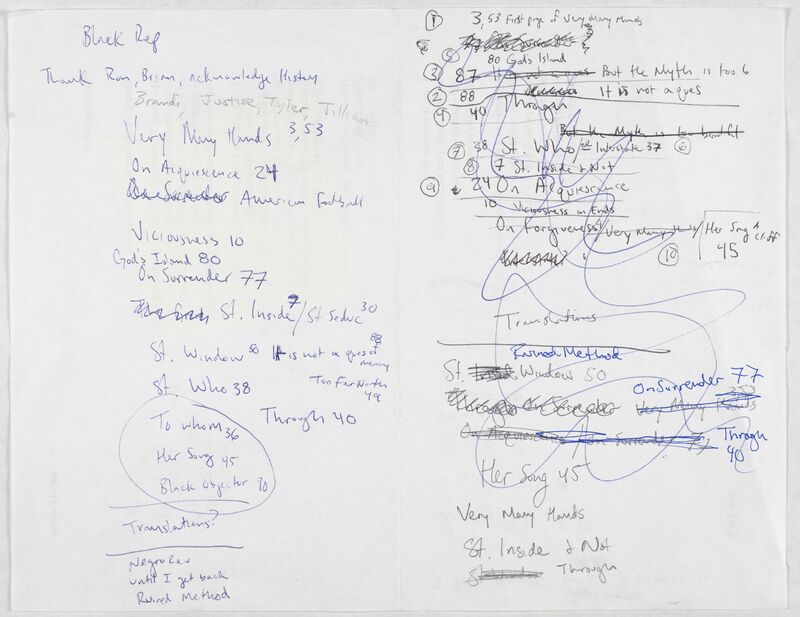 Black Rep
Thank Ron, Brian, acknowledge History
Brandi, Justise, Tyler, Jillian
Very Many Hands 3,53
On Acquiescence 24
On Surrender American Football
Viciousness 10
God's Island 80
On Surrender 77
St. Inside 7/St Seduc 30
St. Window 50 It is not a ques of 88
St. Who 38 Too Far North 49
To whom 36 Through 40
Her Song 45
Black Objector 70
Translations?
NegroRev
until I get back
Ruined Method
① 3,53 First page of Very Many Hands
⑤ 80 God's Island
③ 87 It is not a ques But the Myth is too b
② 88 It is not a ques
④ 40 Through
But the Myth is too beautiful
⑦ 38 St. Who/ Interstate 37 ⑥
⑧ 7 St. Inside & Not
⑨ 24 On Acquiescence
10 Viciousness in Ends
On Forgiveness/Very Many Hands/Her Song
⑩ 45
Translations
Ruined Method
St. Window 50
On Surrender 77
On Surrender Very Many Hands 353
On Acquiescence On Surrender 77 Through 40
Her Song 45
Very Many Hands
St. Inside & Not
Through